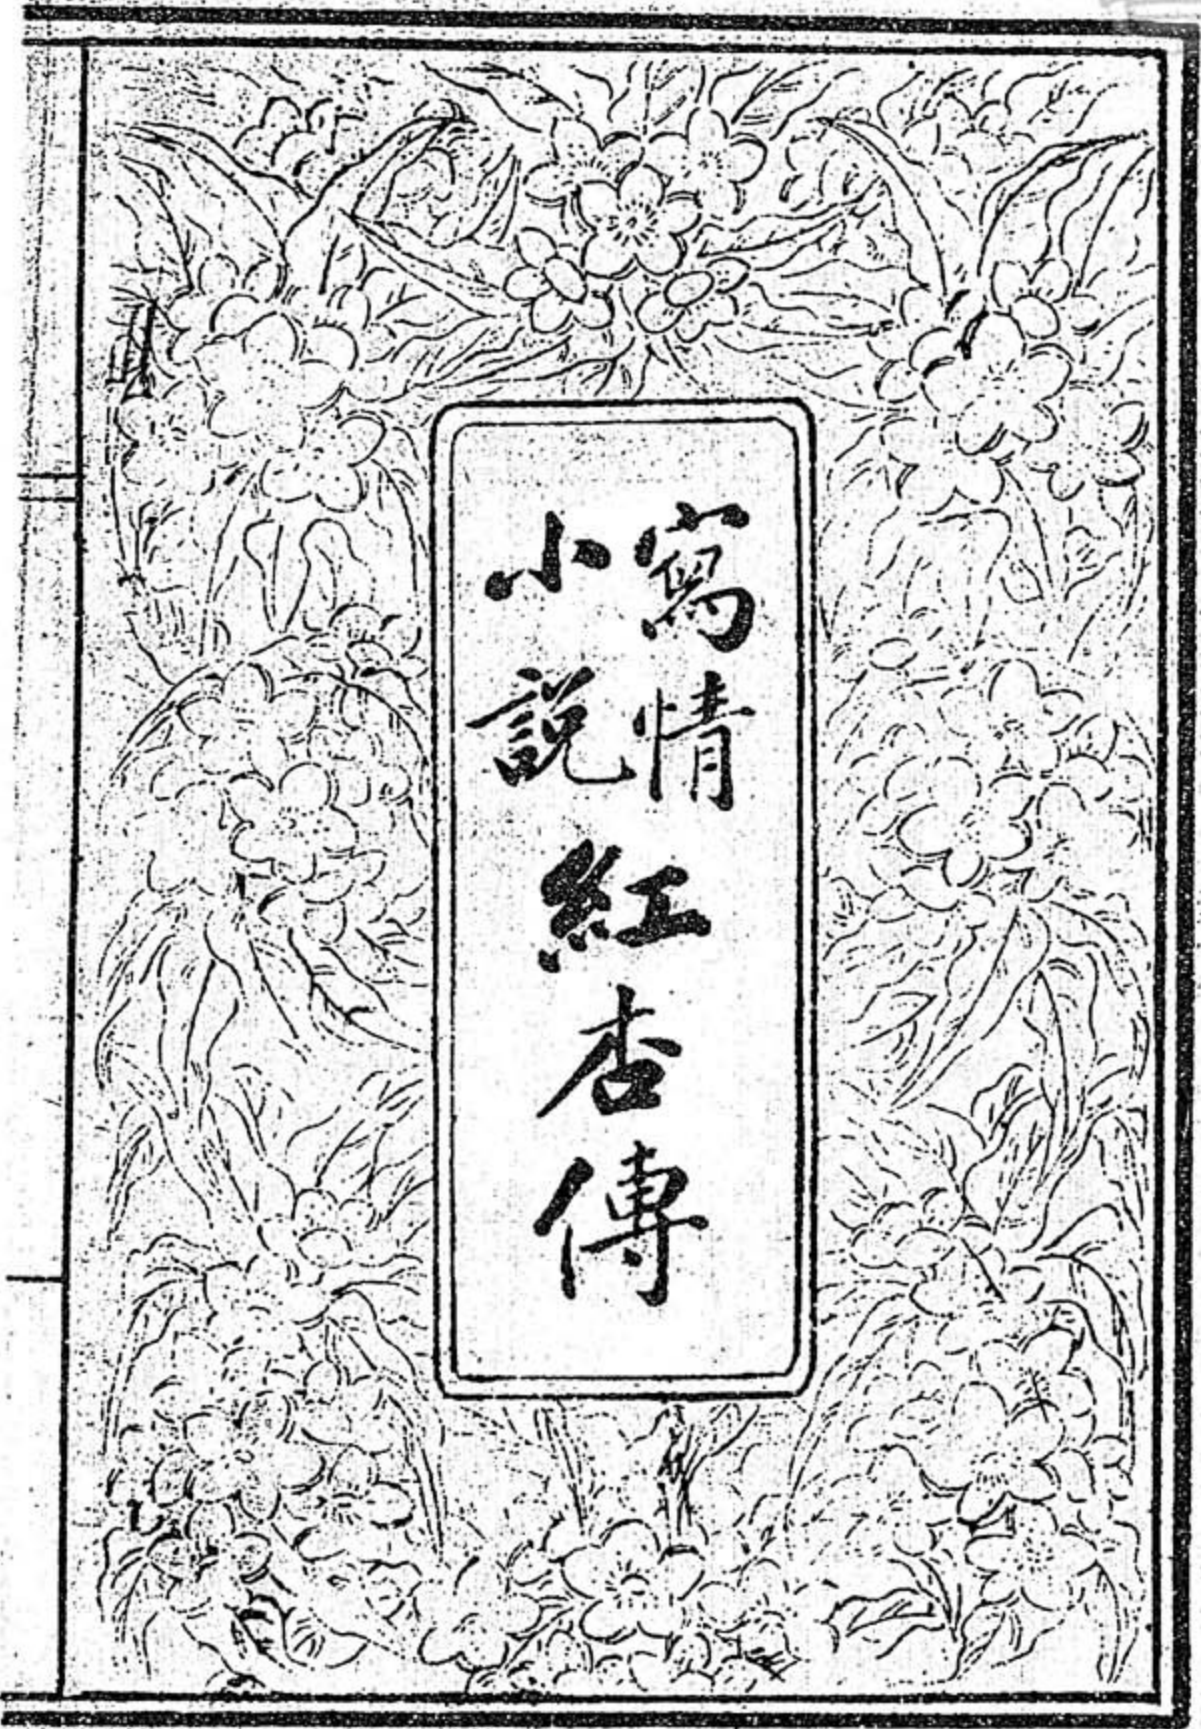 寫情
小說
紅杏傳